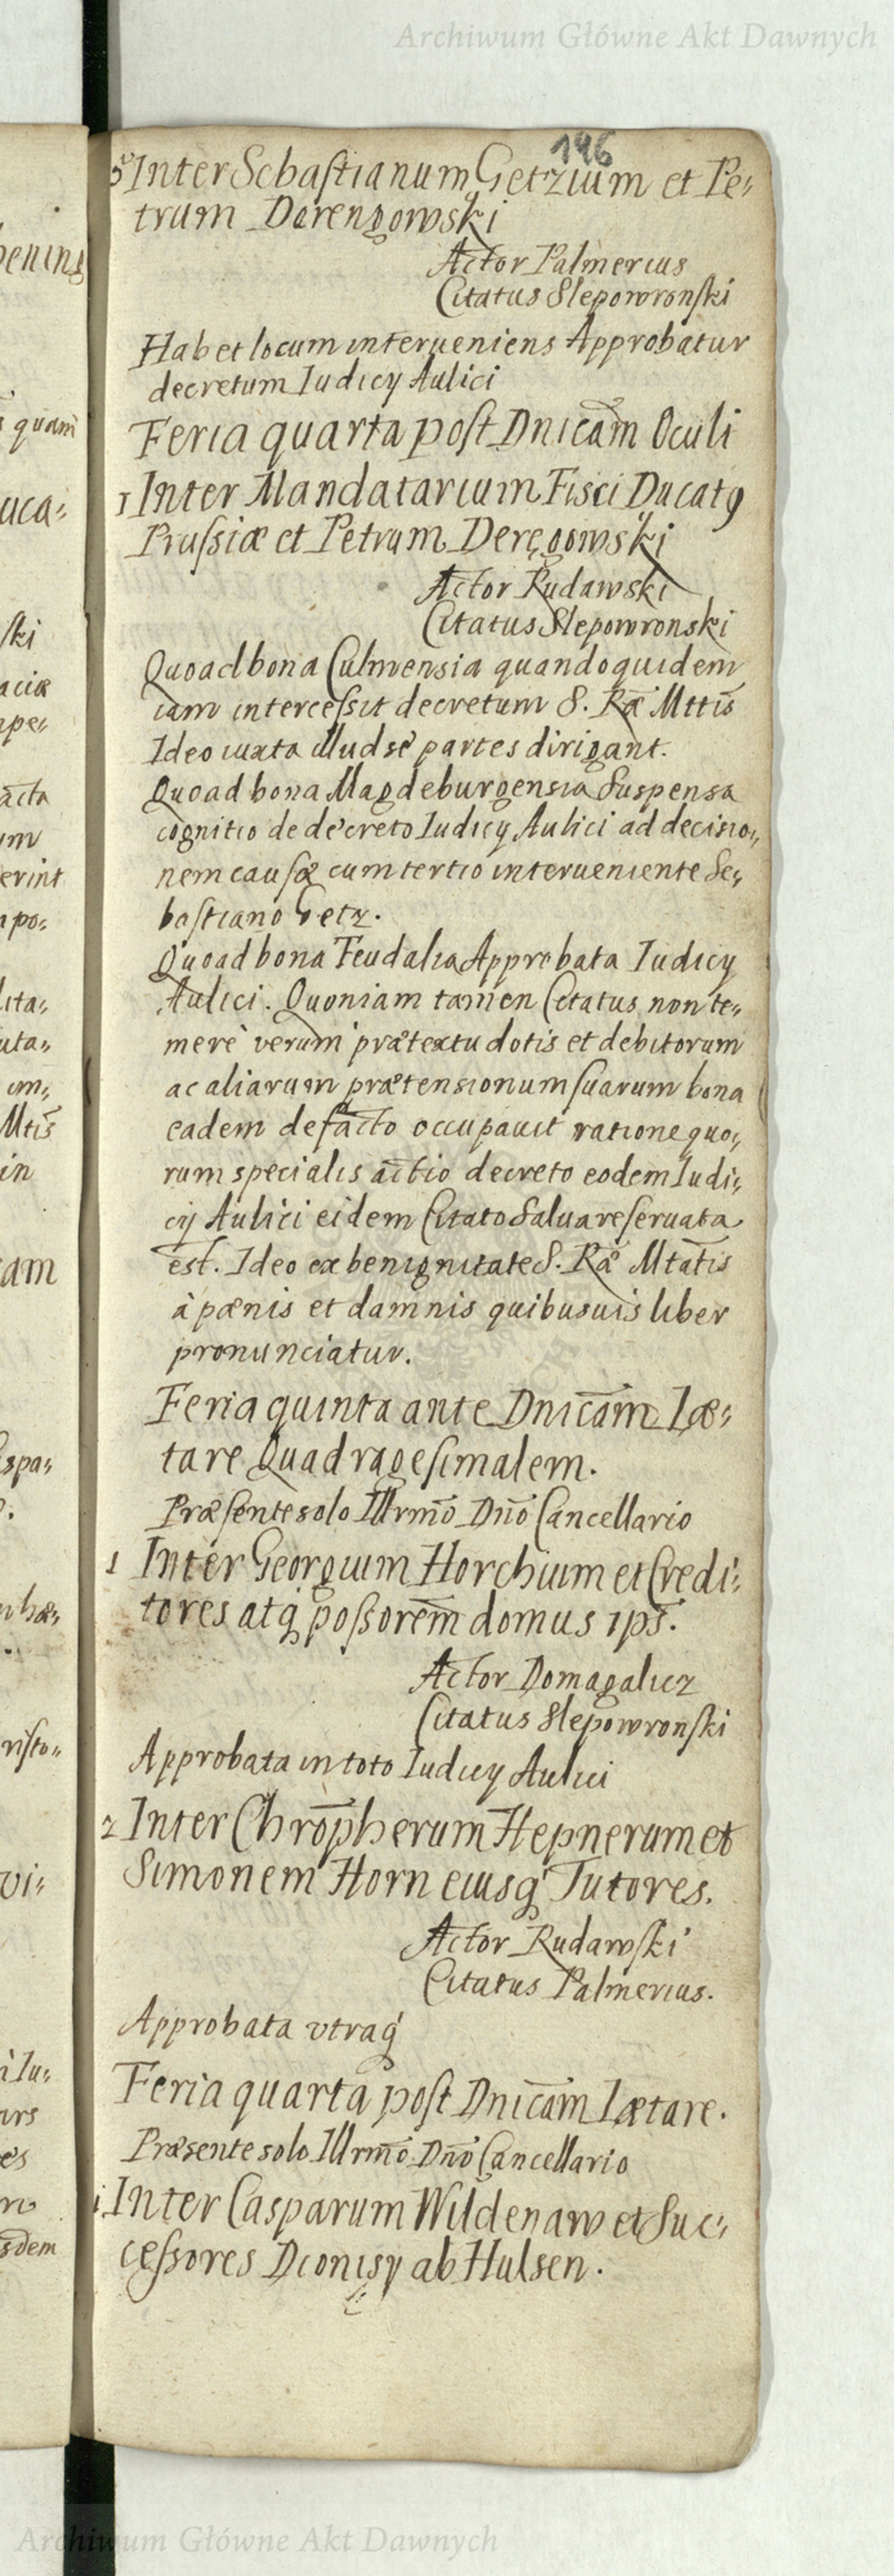 Archiwum Główne Akt Dawnych
146
5 Inter Sebastianum Getzium et Pe-
trum Derengowski
Actor Palmerius
Citatus Slepowronski
Habet locum interueniens Approbatur
decretum Iudicy Aulici
Feria quarta post Dnicam Oculi
1 Inter Mandatarium Fisci Ducatꝰ
Prussiæ et Petrum Deręgowski
Actor Rudawski
Citatus Slepowronski
Quoad bona Culmensia quandoquidem
iam intercessit decretum S. Ræ Mttis
Ideo iuxta illud se partes dirigant.
Quoad bona Magdeburgensia Suspensa
cognitio de decreto Iudicy Aulici ad decisio-
nem causæ cum tertio interueniente Se-
bastiano Getz.
Quoad bona Feudalia Approbata Iudicy
Aulici. Quoniam tamen Citatus non te-
merè verum prætextu dotis et debitorum
ac aliarum prætensionum suarum bona
eadem de facto occupauit ratione quo-
rum specialis actio decreto eodem Iudi-
cij Aulici eidem Citato Salua reseruata
est. Ideo ex benignitate S. Ræ Mtatis
à pænis et damnis quibusuis liber
pronunciatur.
Feria quinta ante Dnicam Læ-
tare Quadragesimalem.
Præsente solo Illrmo Dno Cancellario
1 Inter Georgium Horchium et Credi-
tores atq possorem domus ips.
Actor Domagalicz
Citatus Slepowronski
Approbata in toto Iudicy Aulici
2 Inter Chropherum Hepnerum et
Simonem Horn eiusq Tutores.
Actor Rudawski
Citatus Palmerius.
Approbata vtraq
Feria quarta post Dnicam Lætare.
Præsente solo Illrmo Dno Cancellario
1 Inter Casparum Wildenaw et Suc-
cessores Dionisy ab Hulsen.
Archiwum Główne Akt Dawnych